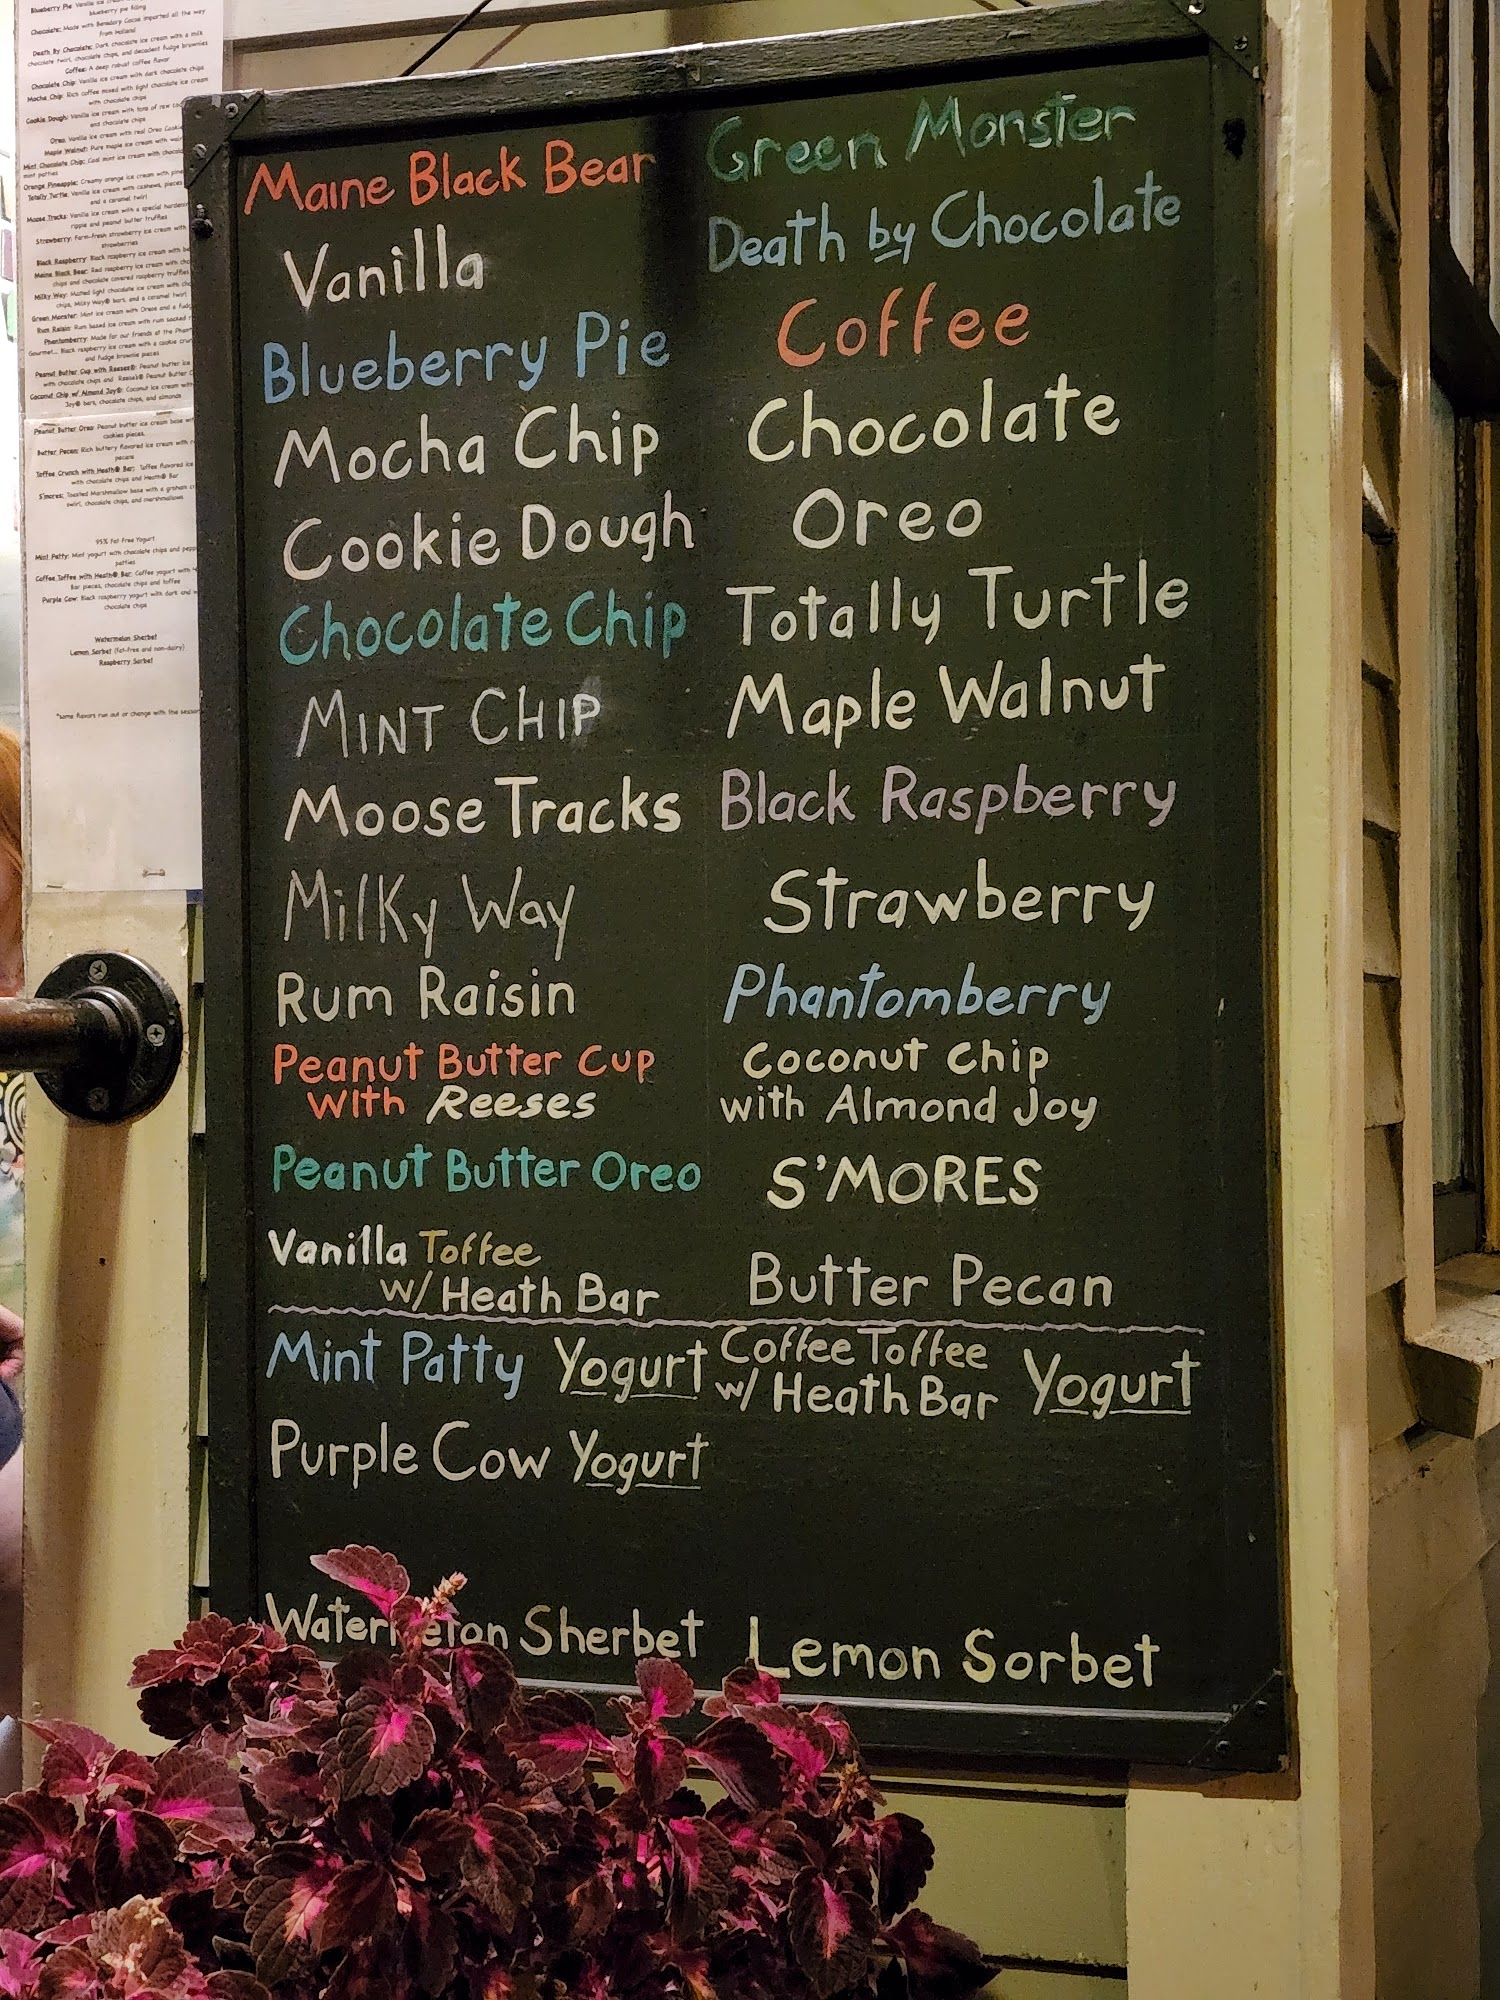 Blueberry Pie: Vanilla ice
blueberry pie filling
Chocolate: Made with Bensdorp Cocoa imported all the way
from Holland
Death By Chocolate: Dark chocolate ice cream with a milk
chocolate twirl, chocolate chips, and decadent fudge brownies
Coffee: A deep robust coffee flavor
Chocolate Chip: Vanilla ice cream with dark chocolate chips
Mocha Chip: Rich coffee mixed with light chocolate ice cream
with chocolate chips
Cookie Dough: Vanilla ice cream with tons of raw
and chocolate chips
Oreo: Vanilla ice cream with real Oreo
Maple Walnut: Pure maple ice cream with
Mint Chocolate Chip: Cool mint ice cream with
mint patties
Orange Pineapple: Creamy orange ice cream with
Totally Turtle: Vanilla ice cream with cashews, pieces
and a caramel twirl
Moose Tracks: Vanilla ice cream with a special
ripple and peanut butter truffles
Strawberry: Farm-fresh strawberry ice cream with
strawberries
Black Raspberry: Black raspberry ice cream with
Maine Black Bear: Red raspberry ice cream with
chips and chocolate covered raspberry truffles
Milky Way: Malted light chocolate ice cream with
chips, Milky Way® bars, and a caramel twirl
Green Monster: Mint ice cream with Oreos and a
Rum Raisin: Rum based ice cream with rum soaked
Phantomberry: Made for our friends at the
Gourmet... Black raspberry ice cream with a cookie
and fudge brownie pieces
Peanut Butter Cup with Reeses®: Peanut butter
with chocolate chips and Reese's® Peanut Butter
Coconut Chip w/ Almond Joy®: Coconut ice cream with
Joy® bars, chocolate chips, and almonds
Peanut Butter Oreo: Peanut butter ice cream base
cookies pieces.
Butter Pecan: Rich buttery flavored ice cream with
pecans
Toffee Crunch with Heath® Bar: Toffee flavored ice
with chocolate chips and Heath® Bar
S'mores: Toasted Marshmallow base with a graham
swirl, chocolate chips, and marshmallows
95% Fat Free Yogurt
Mint Patty: Mint yogurt with chocolate chips and
patties
Coffee Toffee with Heath® Bar: Coffee yogurt with
Bar pieces, chocolate chips and toffee
Purple Cow: Black raspberry yogurt with dark and
chocolate chips
Watermelon Sherbet
Lemon Sorbet (fat-free and non-dairy)
Raspberry Sorbet
*some flavors run out or change with the
Maine Black Bear
Vanilla
Blueberry Pie
Mocha Chip
Cookie Dough
Chocolate Chip
MINT CHIP
Moose Tracks
Milky Way
Rum Raisin
Peanut Butter Cup
with Reeses
Peanut Butter Oreo
Vanilla Toffee
w/ Heath Bar
Green Monster
Death by Chocolate
Coffee
Chocolate
Oreo
Totally Turtle
Maple Walnut
Black Raspberry
Strawberry
Phantomberry
Coconut Chip
with Almond Joy
S'MORES
Butter Pecan
Mint Patty Yogurt
Purple Cow Yogurt
Coffee Toffee
w/ Heath Bar Yogurt
Watermelon Sherbet
Lemon Sorbet